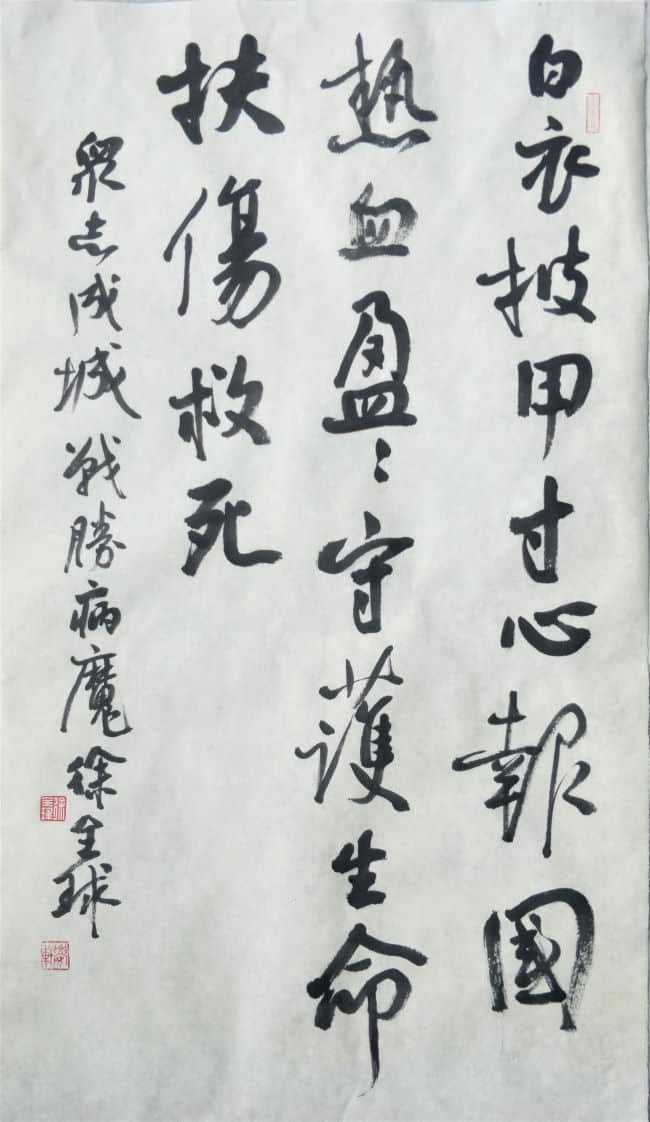 白衣披甲寸心報國
熱血盈〻守護生命
扶傷救死
眾志成城戰勝病魔徐全球